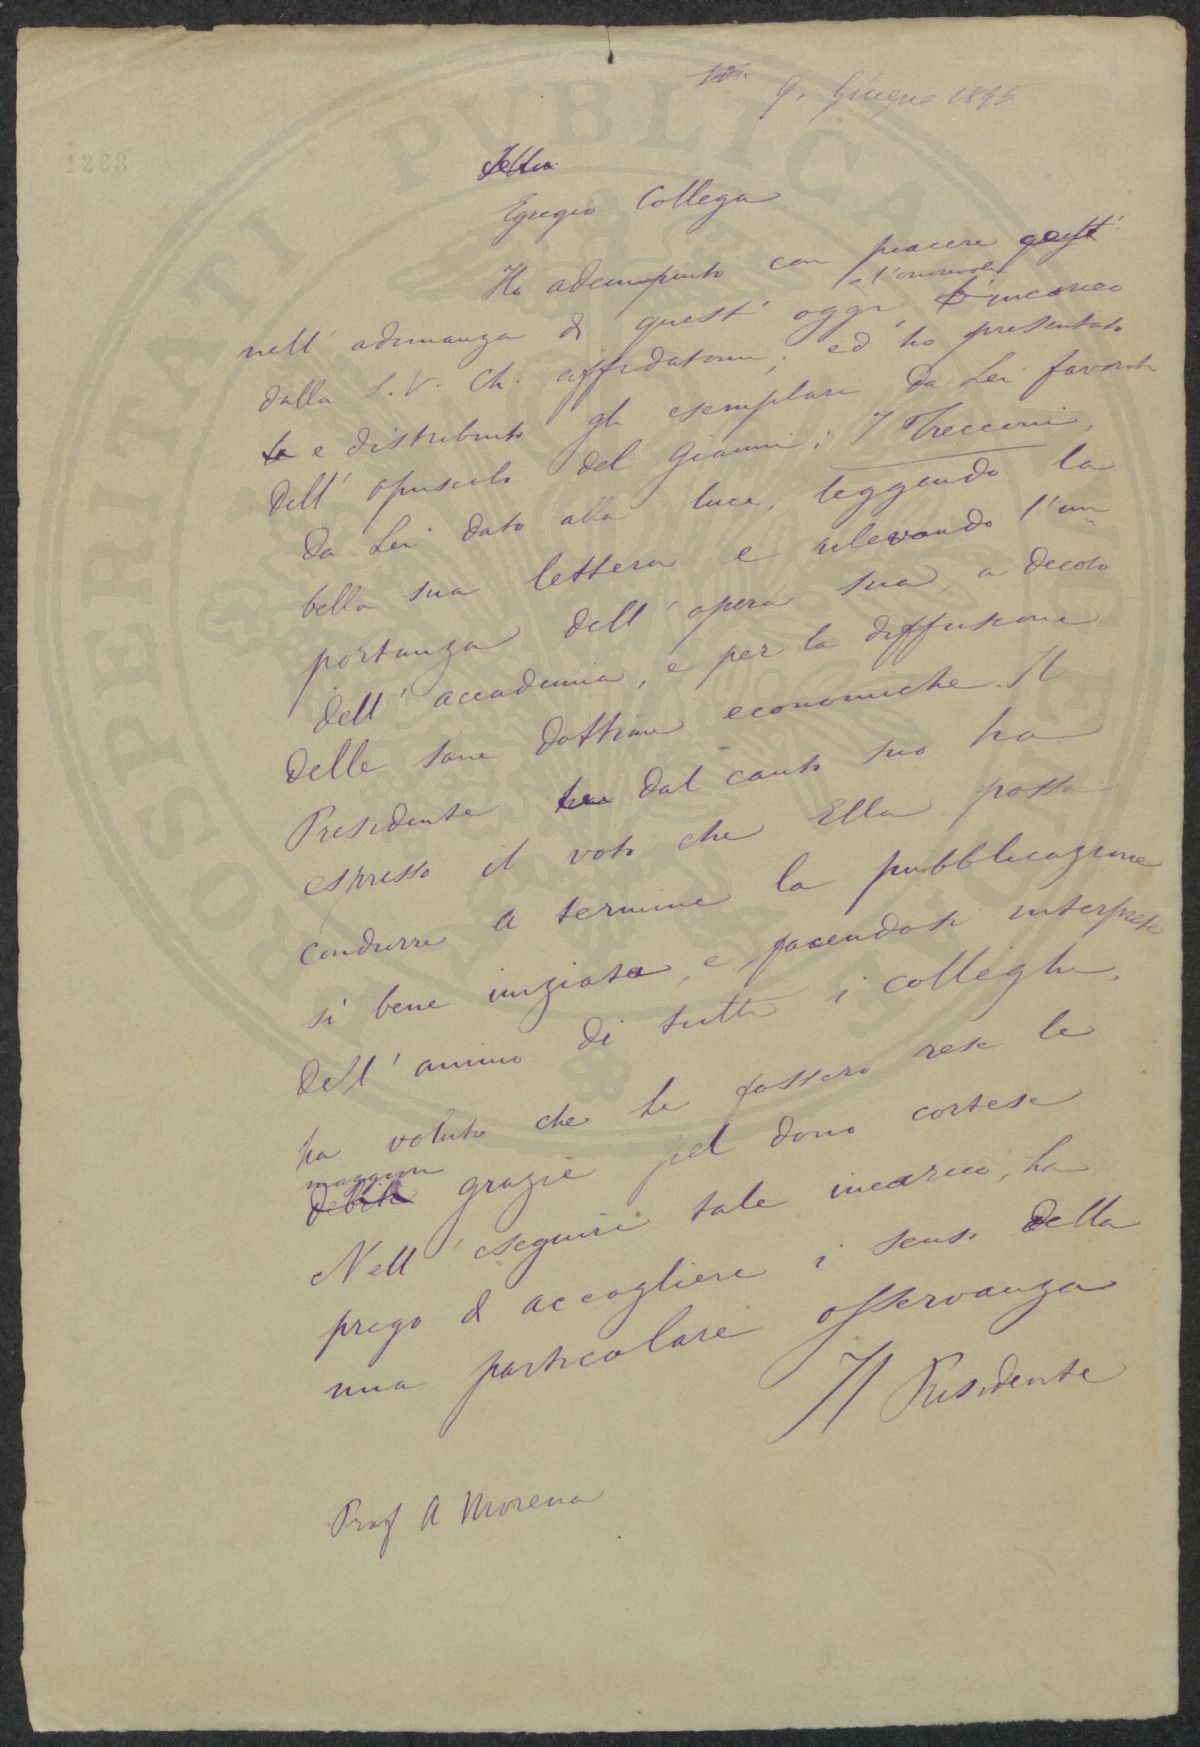 9. Giugno 1895
1268
Egregio Collega
Ho adempiuto con piacere
nell' adunanza di quest' oggi, l'onorevole incarico
dalla S. V. Ch. affidatomi; ed ho presentato
e distribuito gli esemplari da Lei favoriti
dell' opuscolo del Gianni; I Trecconi,
da Lei dato alla luce, leggendo la
bella sua lettera e rilevando l'im-
portanza dell' opera sua, a decoro
dell' accademia, e per la diffusione
delle sane dottrine economiche. Il
Presidente dal canto suo ha
espresso il voto che Ella possa
condurre a termine la pubblicazione
sì bene iniziata, e facendosi interprete
dell' animo di tutti i colleghi,
ha voluto che Le fossero rese le
maggiori
debite grazie pel dono cortese
Nell' eseguire tale incarico, La
prego di accogliere i sensi della
mia particolare osservanza
Il Presidente
Prof A Morena
PROSPERITATI PUBLICAE